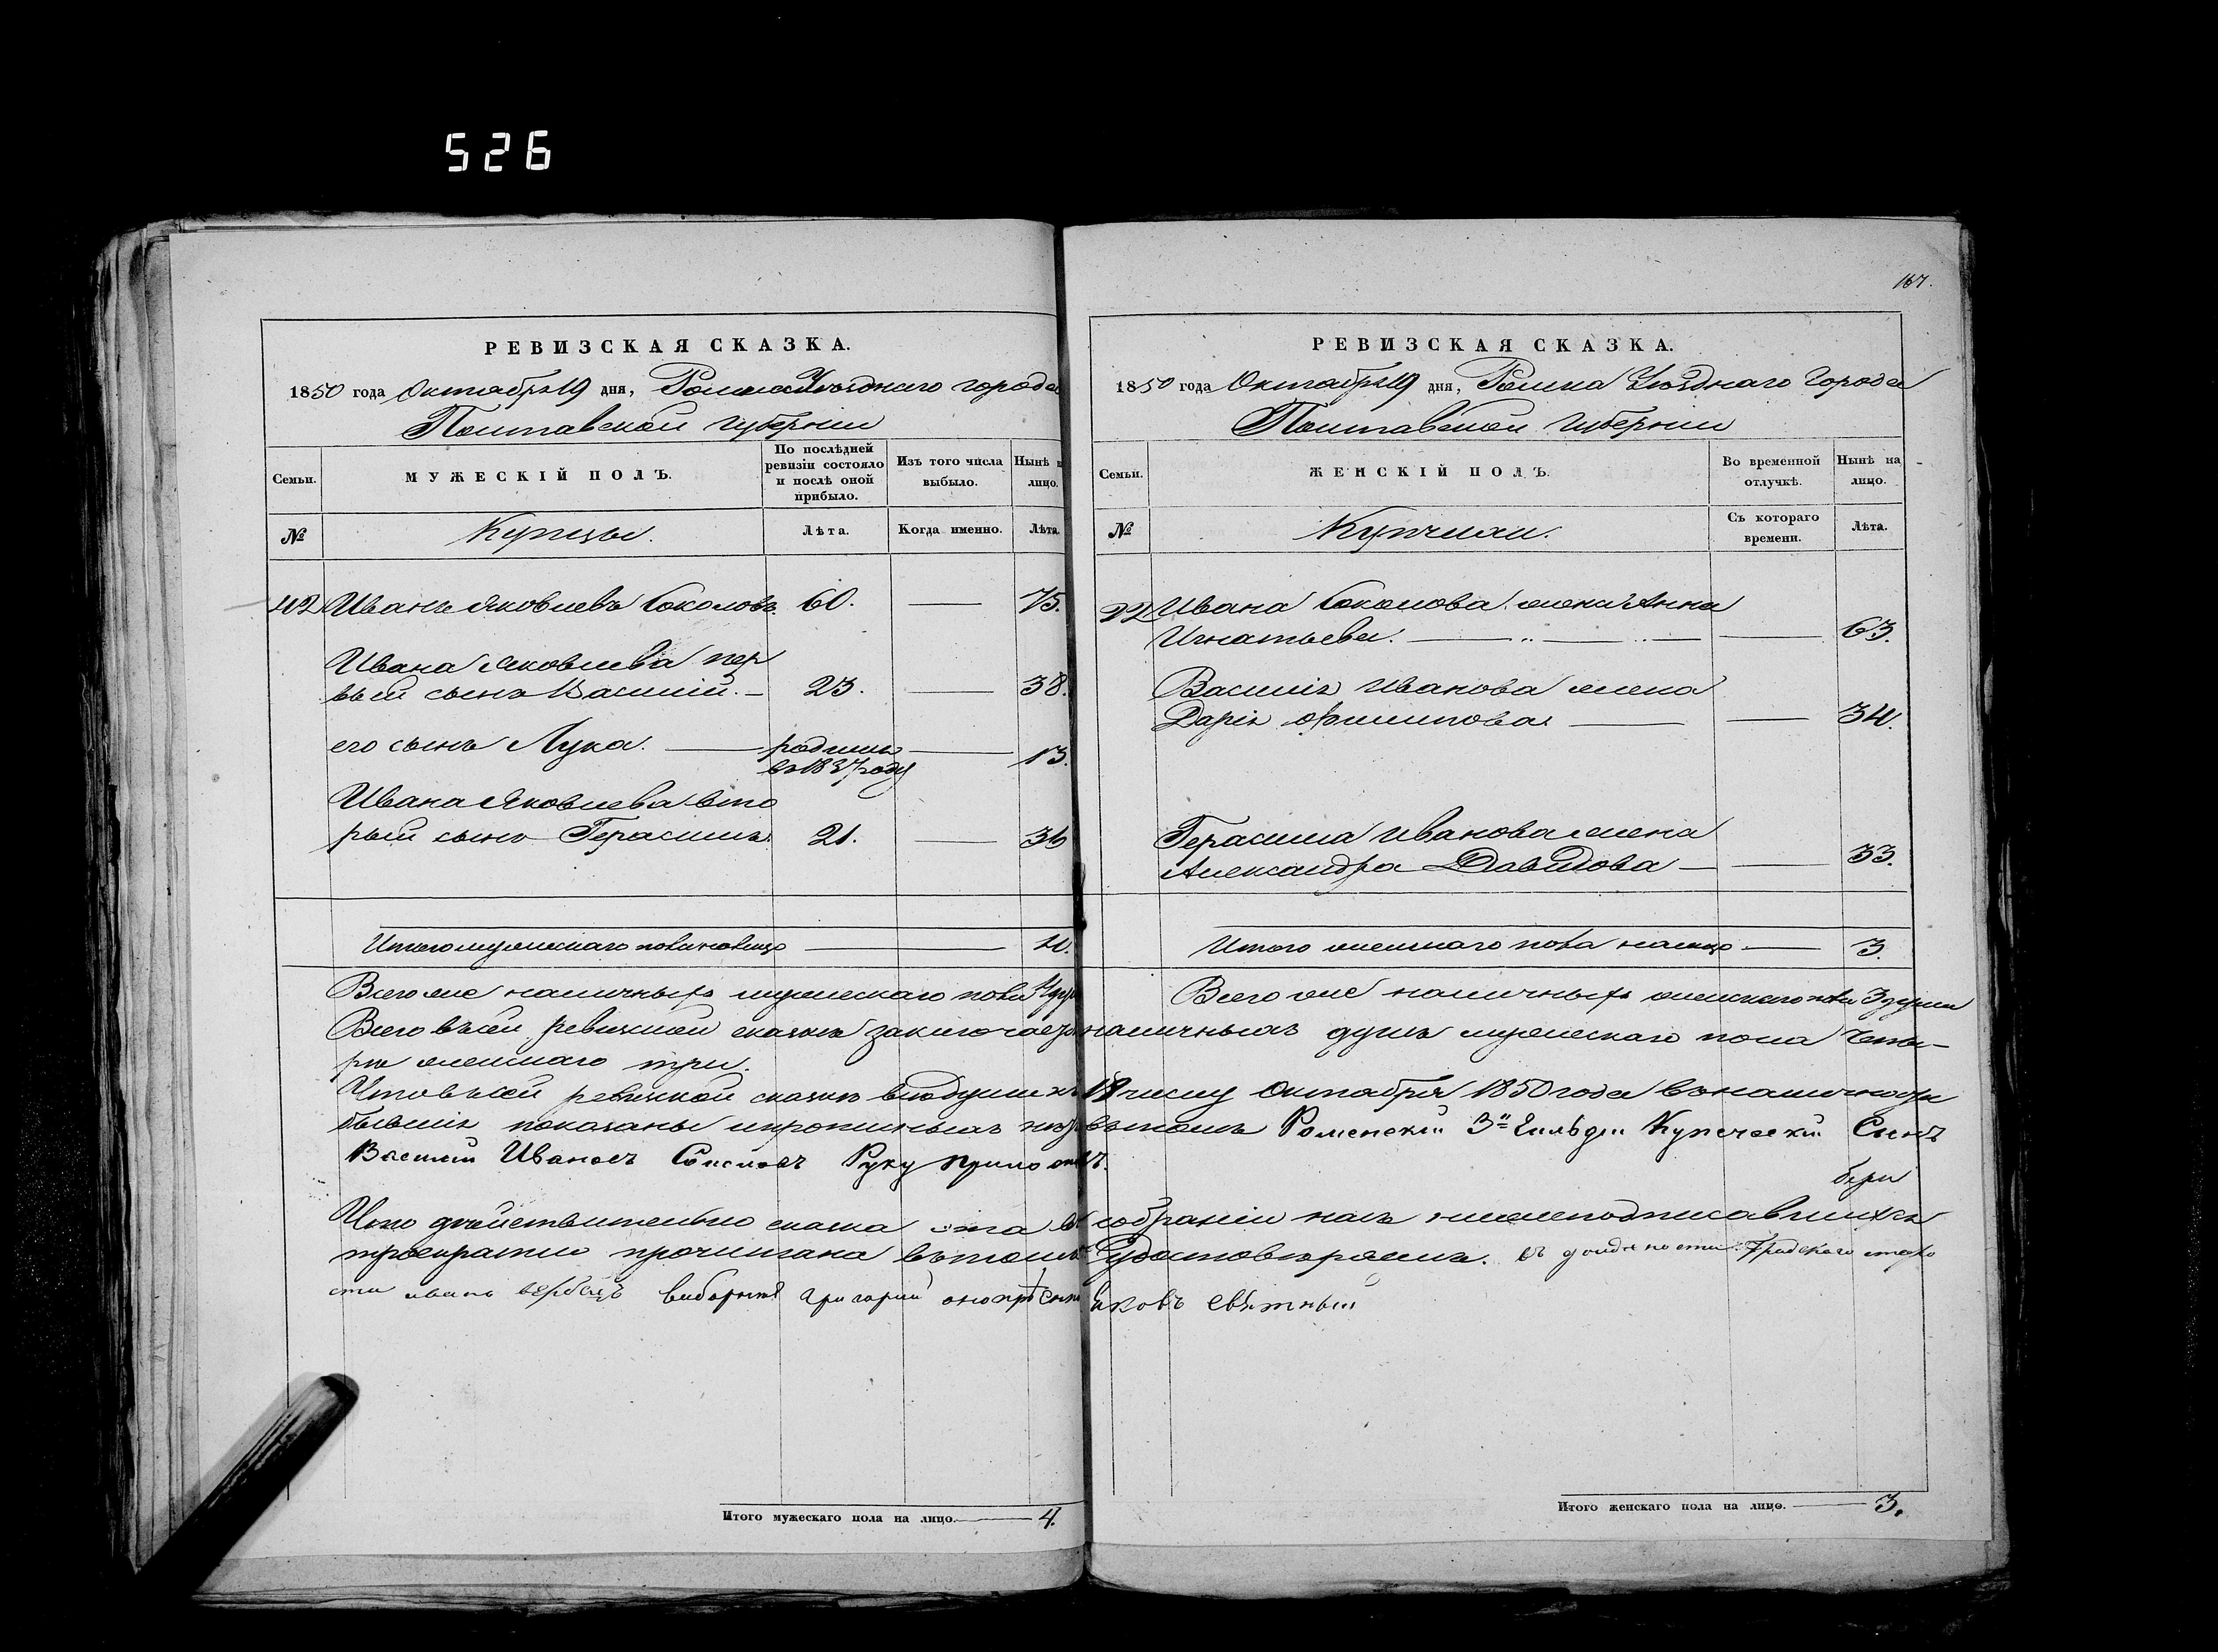 526
167.
РЕВИЗСКАЯ СКАЗКА.
1850 года Октября 19 дня, Ромна Уѣзднаго города
Полтавской губерніи
Семьи.
МУЖЕСКІЙ ПОЛЪ.
По послѣдней ревизіи состояло и послѣ оной прибыло.
Изъ того числа выбыло.
Нынѣ на лицо.
№
Купцы.
Лѣта.
Когда именно.
Лѣта.
42 Иванъ Яковлевъ Соколовъ. 60. — 75.
Ивана Яковлева пер
вый сынъ Василій. — 23. — 38.
его сынъ Лука. — родился — 13.
въ 1837 году
Ивана Яковлева вто
рый сынъ Герасимъ. 21. — 36
Итого мужескаго пола на лицо — 4.
Всего же наличныхъ мужескаго пола 4 души
РЕВИЗСКАЯ СКАЗКА.
1850 года Октября 19 дня, Ромна Уѣзднаго Города
Полтавской Губерніи
Семьи.
ЖЕНСКІЙ ПОЛЪ.
Во временной отлучкѣ.
Нынѣ на лицо.
№
Купчихи.
Съ котораго времени.
Лѣта.
Ивана Соколова жена Анна
Игнатьева. — — — 63.
Василія Иванова жена
Дарія Филипова — — 34.
Герасима Иванова жена
Александра Давидова — — 33.
Итого женскаго пола на лицо — 3.
Всего же наличныхъ женскаго пола 3 души
Всего въ сей ревизкой сказкѣ заключается наличныхъ душъ мужескаго пола четы-
ре женскаго три.
Что въ сей ревизкой сказкѣ всѣ души къ 19 числу Октября 1850 года въ наличности
бывшія показаны и прописныхъ нѣтъ въ томъ Роменскій 3й Гильдіи Купеческій Сынъ
Василий Ивановъ Соколовъ Руку приложилъ.
Что дѣйствительно сказка эта въ собраніи насъ нижеподписавшихся
троекратно прочитана въ томъ удостовѣряемъ. въ должности Градскаго старо
сты иванъ вербецъ выборные григорий яковъ
Итого мужескаго пола на лицо. — 4.
Итого женскаго пола на лицо. — 3.